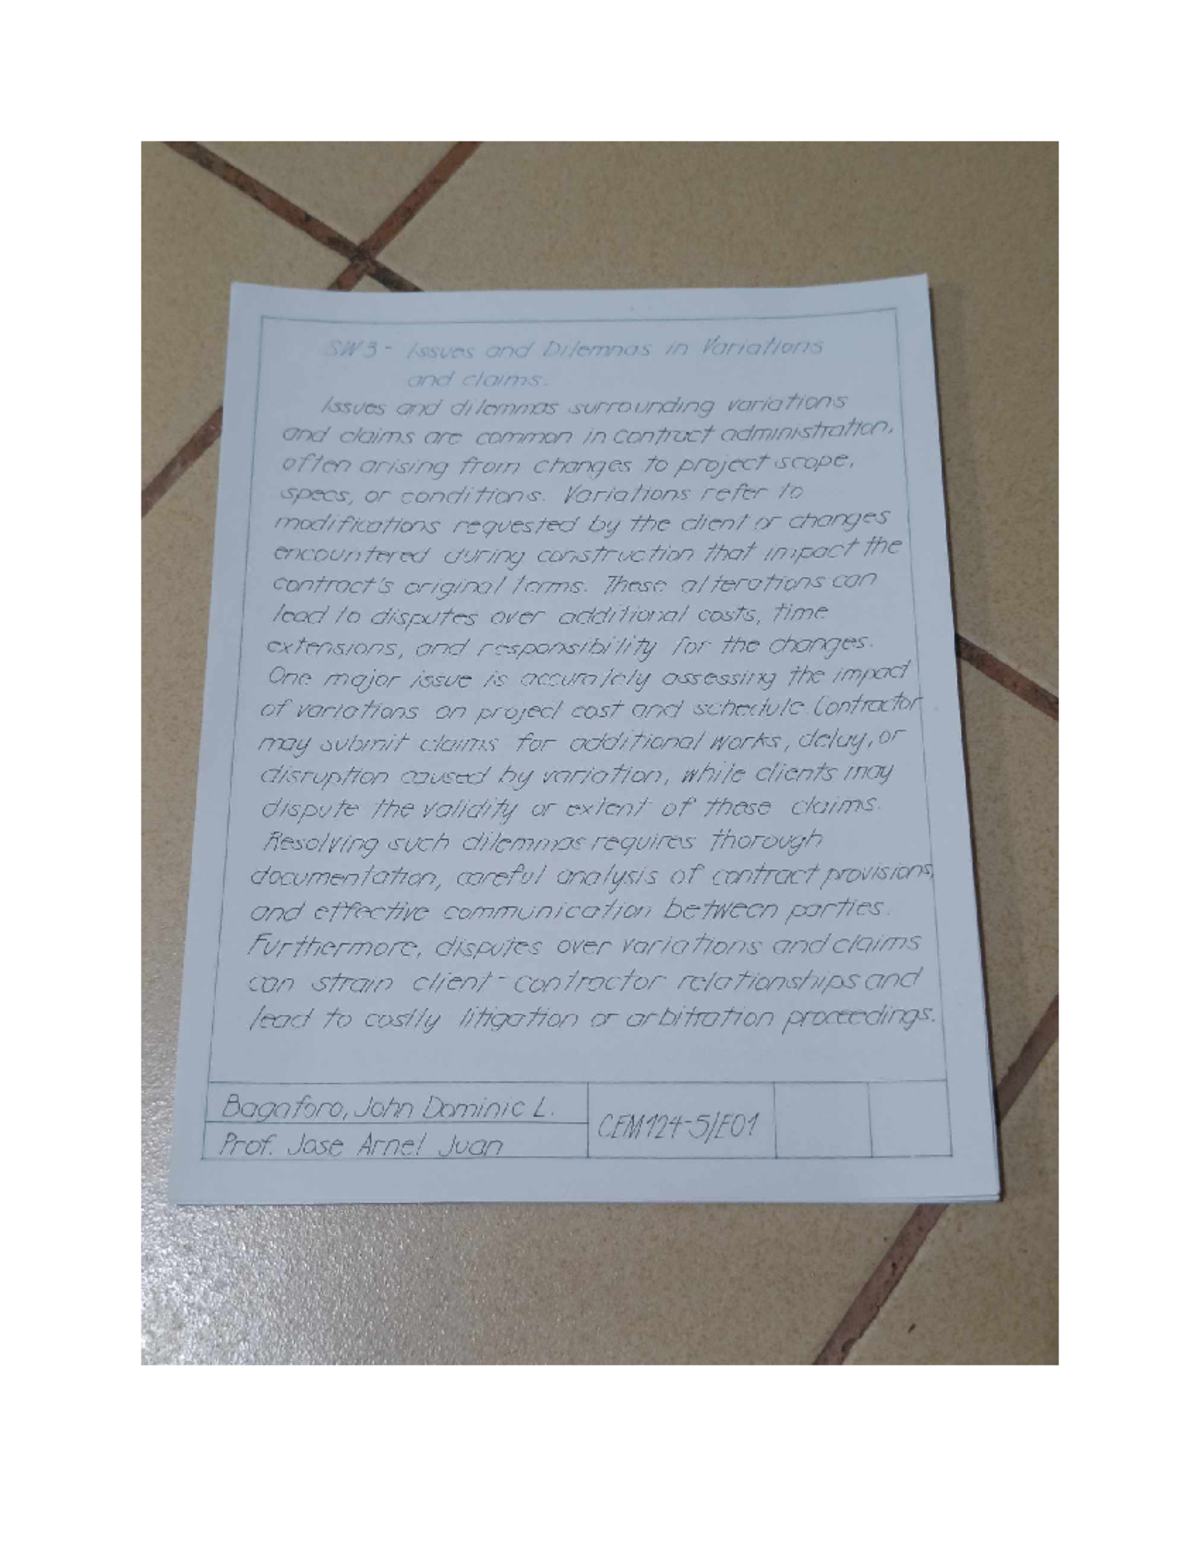 SW3 - Issues and Dilemnas in Variations
and claims.
Issues and dilemmas surrounding variations
and claims are common in contract administration,
often arising from changes to project scope,
specs, or conditions. Variations refer to
modifications requested by the client or changes
encountered during construction that impact the
contract's original terms. These alterations can
lead to disputes over additional costs, time
extensions, and responsibility for the changes.
One major issue is accurately assessing the impact
of variations on project cost and schedule. Contractor
may submit claims for additional works, delay, or
disruption caused by variation, while clients may
dispute the validity or extent of these claims.
Resolving such dilemmas requires thorough
documentation, careful analysis of contract provisions,
and effective communication between parties.
Furthermore, disputes over variations and claims
can strain client-contractor relationships and
lead to costly litigation or arbitration proceedings.
Bagaforo, John Dominic L.
Prof. Jose Arnel Juan
CEM124-5/E01